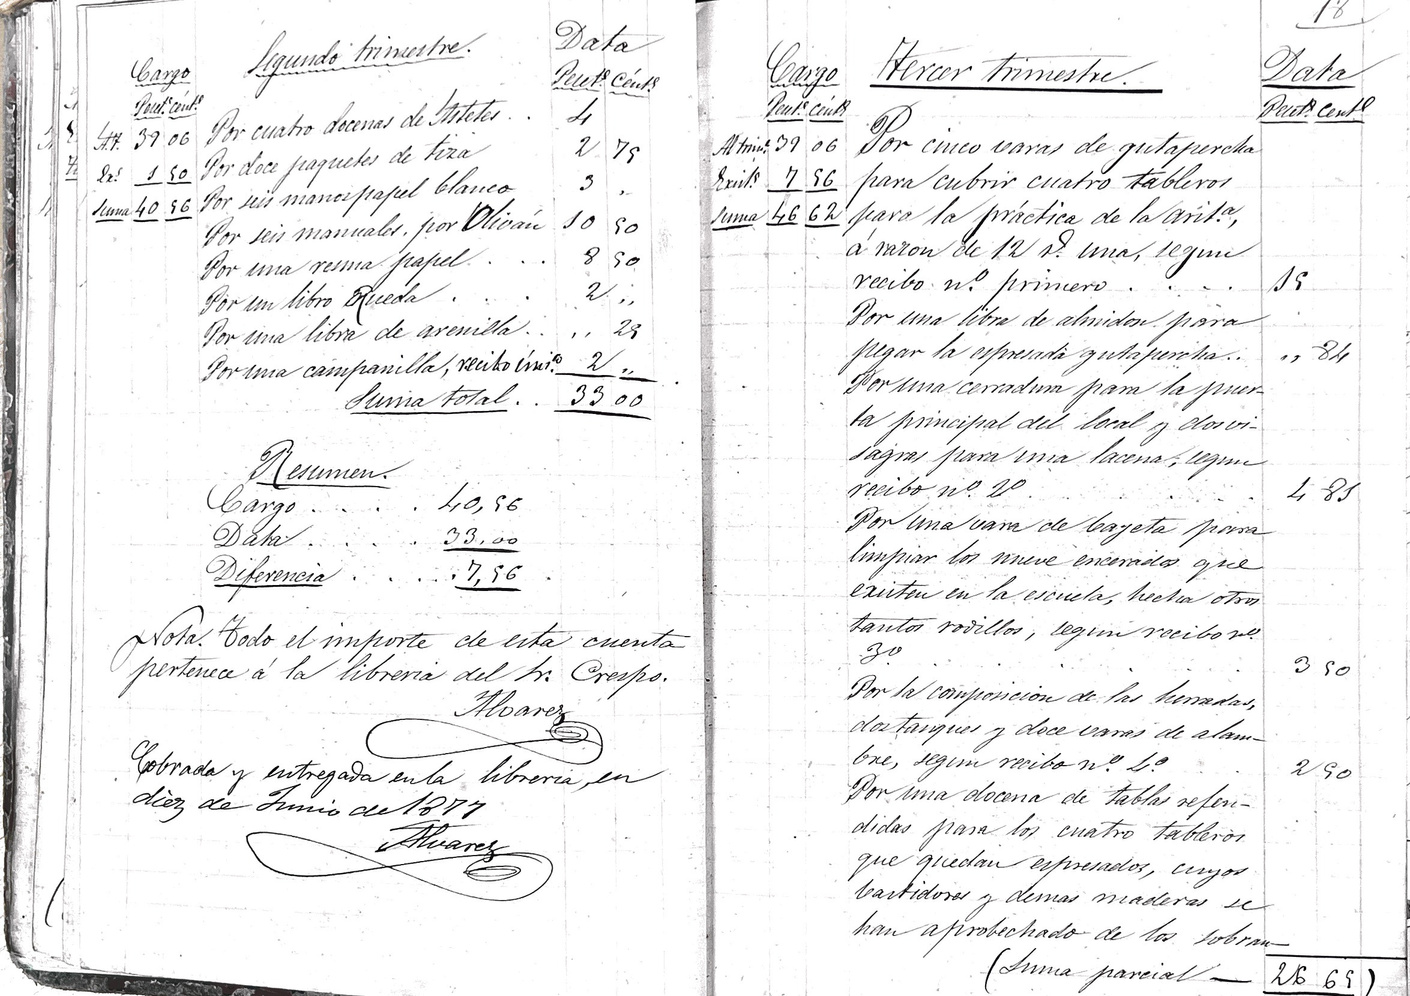 Segundo trimestre.
Cargo Data
Pest.s cént.s Pest.s Cént.s
At. 39 06 Por cuatro docenas de Astetes . . 4
Ex.s 1 50 Por doce paquetes de tiza 2 75
Suma 40 56 Por seis manos papel blanco 3 "
Por seis manuales, por Oliván 10 50
Por una resma papel . . . . 8 50
Por un libro Rueda . . . . 2 "
Por una libra de arenilla . . " 25
Por una campanilla, recibo únic.o 2 "
Suma total . . 33 00
Resumen.
Cargo . . . . . 40,56
Data . . . . . 33,00
Diferencia . . . . . 7,56 .
Nota. Todo el importe de esta cuenta
pertenece á la libreria del Sr. Crespo.
Alvarez
Cobrada y entregada en la libreria, en
diez de Junio de 1877
Alvarez
18
Cargo Tercer trimestre. Data
Pest.s cént.s Pest.s Cent.s
At trim.e 39 06 Por cinco varas de gutapercha
Exist.s 7 56 para cubrir cuatro tableros
Suma 46 62 para la práctica de la arit.a,
á razon de 12 r.s una, segun
recibo n.o primero . . . . 15
Por una libra de almidon para
pegar la espresada gutapercha . . " 84
Por una cerradura para la puer-
ta principal del local y dos vi-
sagras para una lacena, segun
recibo n.o 2.o . . . . 4 81
Por una vara de bayeta para
limpiar los nueve encerados que
existen en la escuela, hecha otros
tantos rodillos, segun recibo n.o
3.o . . . . 3 50
Por la composicion de las herradas,
dos tanques y doce varas de alam-
bre, segun recibo n.o 4.o . . 2 50
Por una docena de tablas refen-
didas para los cuatro tableros
que quedan espresados, cuyos
bastidores y demas maderas se
han aprobechado de los sobran-
(Suma parcial — 26 65)